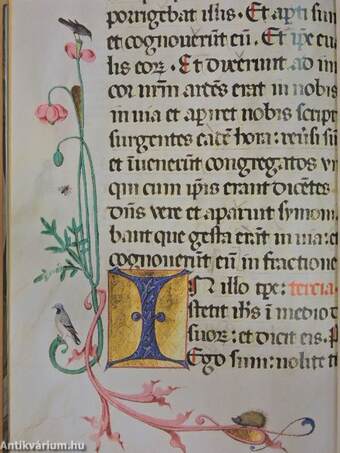 porrigebat illis. Et apti sunt
et cognouerūt eū. Et ipe eua
lis eorz. Et dixerunt ad in
cor nrm ardēs erat in nobis
in uia et apiret nobis script
surgentes eadē hora: reūsi sūt
et īuenerūt congregatos un
qui cum ipīs erant dicētes
dn̄s vere et aparuit symoni.
bant que gesta erāt in uia: et
cognouerūt eū in fractione
In illo tpe: tercia
stetit ih̄s ī medio d
suor: et dicit eis. P
Ego sum: nolite ti
Antikvárium.hu